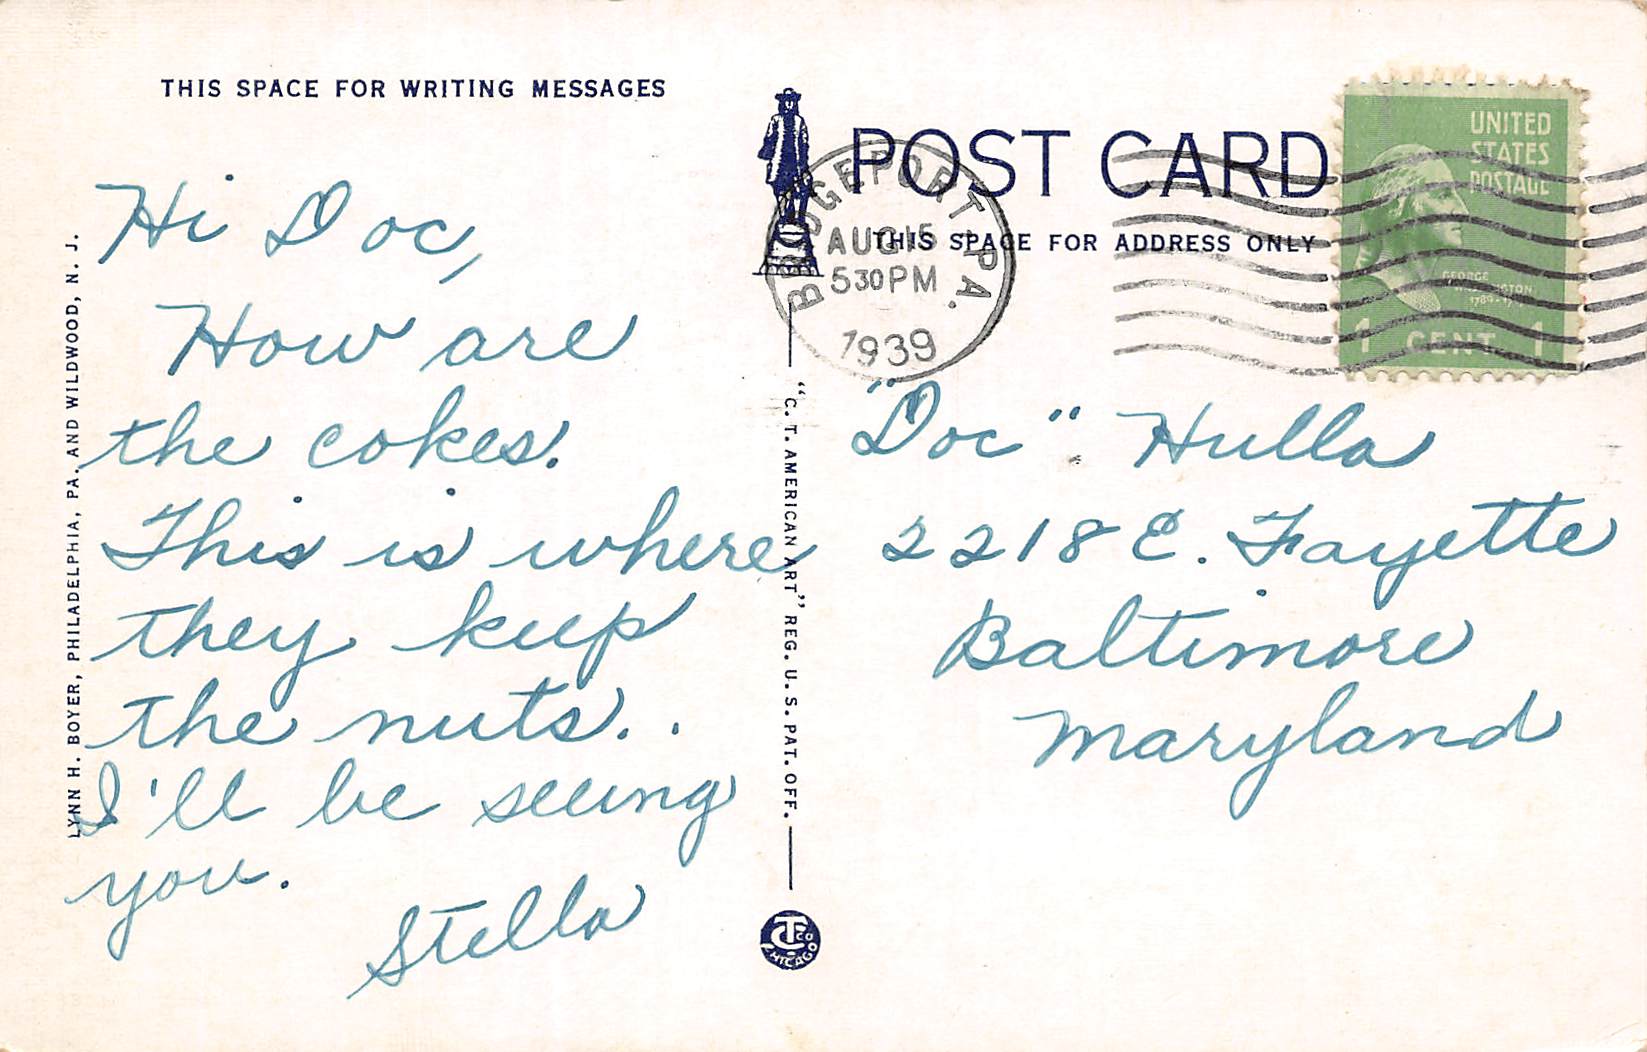 THIS SPACE FOR WRITING MESSAGES
Hi Doc,
How are
the cokes.
This is where
they keep
the nuts..
I'll be seeing
you.
Stella
LYNN H. BOYER, PHILADELPHIA, PA. AND WILDWOOD, N. J.
"C. T. AMERICAN ART" REG. U. S. PAT. OFF.
CT CO
CHICAGO
POST CARD
THIS SPACE FOR ADDRESS ONLY
BRIDGEPORT, PA.
AUG 15
530 PM
1939
UNITED
STATES
POSTAGE
GEORGE
WASHINGTON
1789-1797
1 CENT 1
"Doc" Hulla
2218 E. Fayette
Baltimore
Maryland